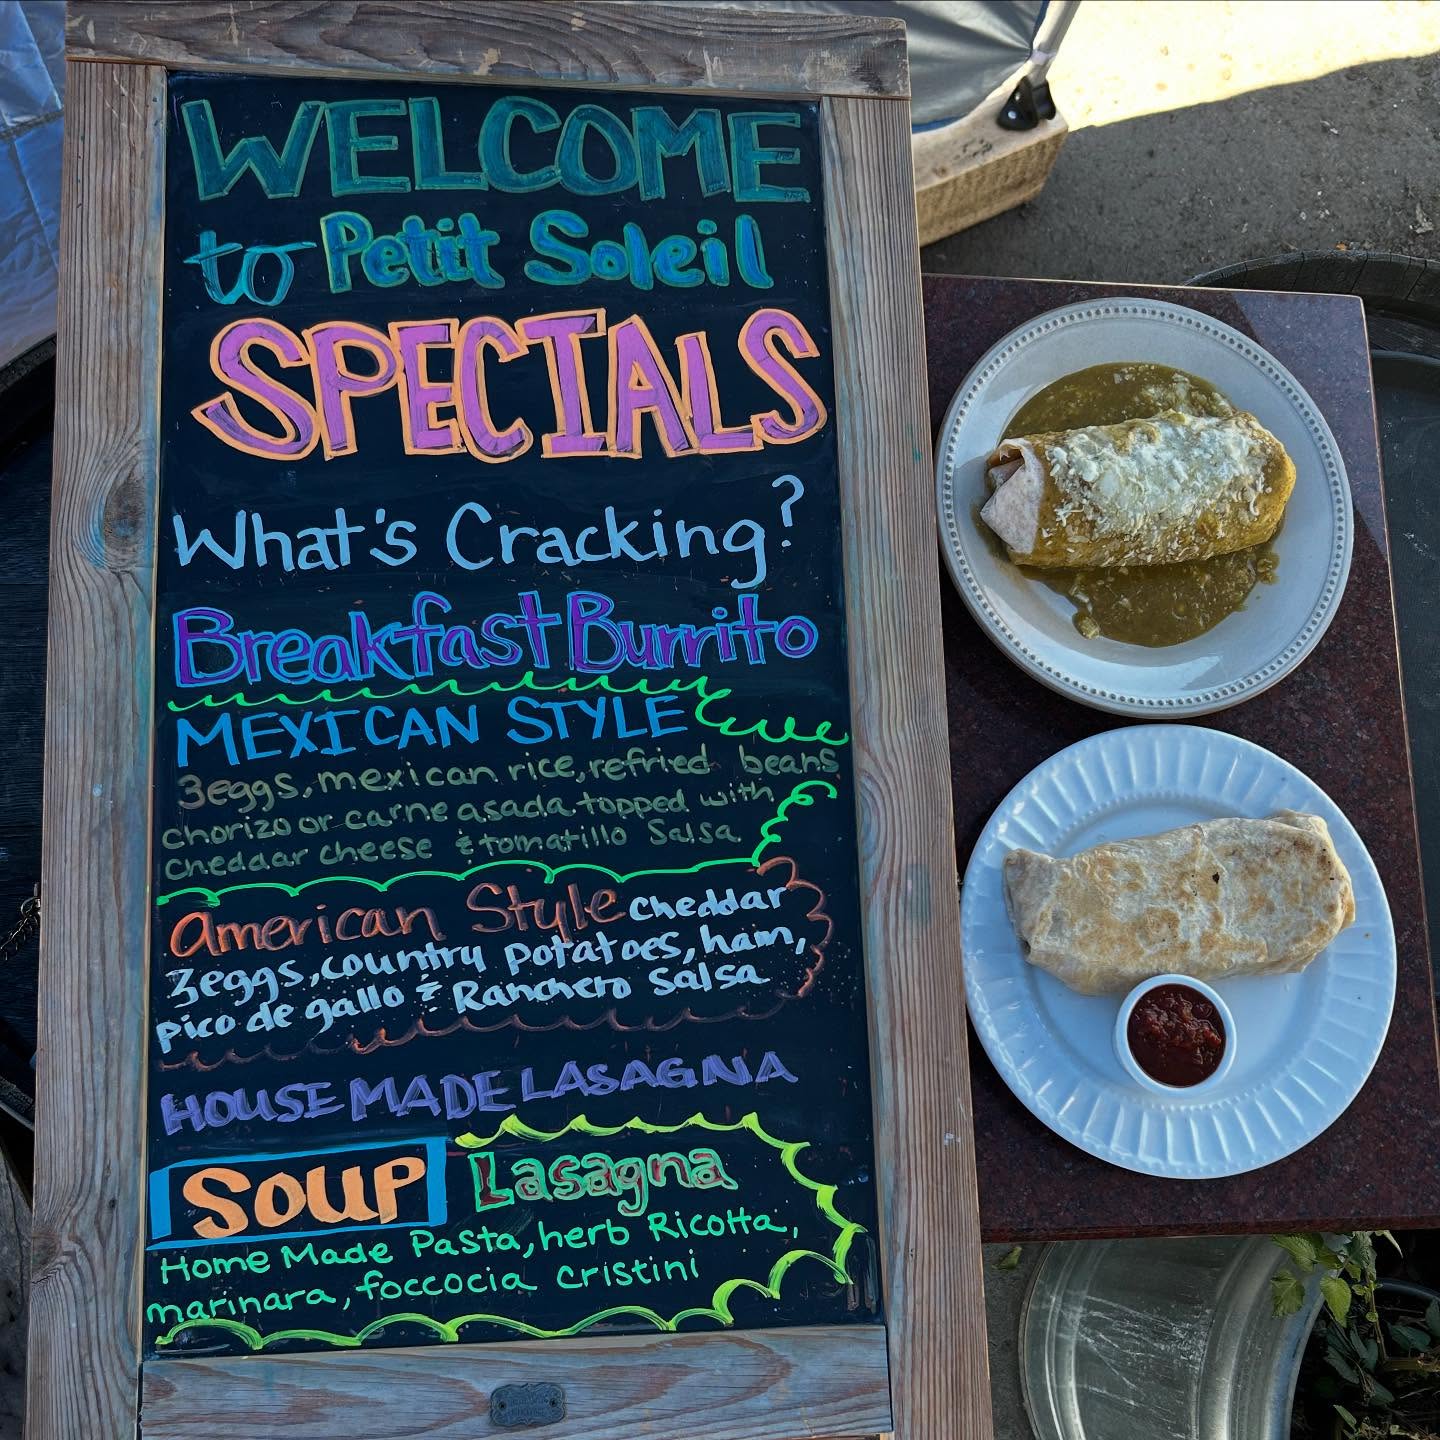 WELCOME
to Petit Soleil
SPECIALS
What's Cracking?
Breakfast Burrito
MEXICAN STYLE
3eggs, mexican rice, refried beans
chorizo or carne asada topped with
cheddar cheese & tomatillo Salsa
American Style cheddar
3eggs, country potatoes, ham,
pico de gallo & Ranchero Salsa
HOUSE MADE LASAGNA
SOUP Lasagna
Home Made Pasta, herb Ricotta,
marinara, foccocia cristini